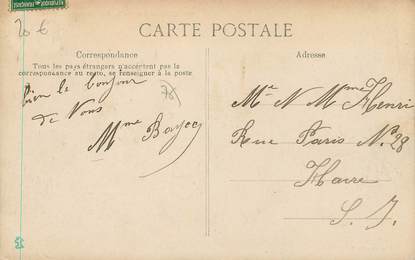 RÉPUBLIQUE FRANÇAISE
20 €
CARTE POSTALE
Correspondance
Tous les pays étrangers n'acceptent pas la
correspondance au recto, se renseigner à la poste
bien le bonjour
de Vous
Mme
76
Adresse
Me N Mme Henri
Rue Paris No 28
Havre
S. I.